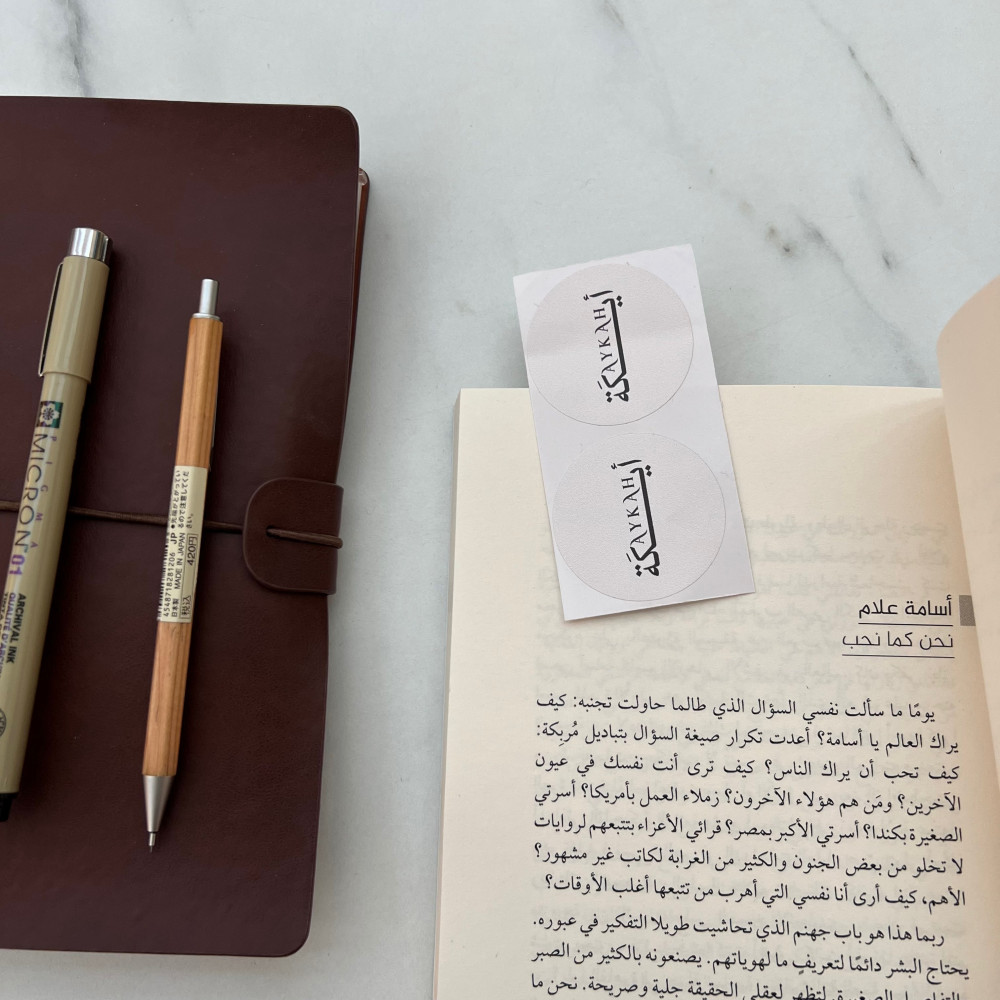 PIGMA
MICRON
01
ARCHIVAL INK
●先端がとがってい
るので注意してくださ
い。
JP
MADE IN JAPAN
420円
4548718281206
日本製
税込
أيكة
AYKAH
أيكة
AYKAH
أسامة علام
نحن كما نحب
يومًا ما سألت نفسي السؤال الذي طالما حاولت تجنبه: كيف
يراك العالم يا أسامة؟ أعدت تكرار صيغة السؤال بتباديل مُربِكة:
كيف تحب أن يراك الناس؟ كيف ترى أنت نفسك في عيون
الآخرين؟ ومَن هم هؤلاء الآخرون؟ زملاء العمل بأمريكا؟ أسرتي
الصغيرة بكندا؟ أسرتي الأكبر بمصر؟ قرائي الأعزاء بتتبعهم لروايات
لا تخلو من بعض الجنون والكثير من الغرابة لكاتب غير مشهور؟
الأهم، كيف أرى أنا نفسي التي أهرب من تتبعها أغلب الأوقات؟
ربما هذا هو باب جهنم الذي تحاشيت طويلا التفكير في عبوره.
يحتاج البشر دائمًا لتعريفٍ ما لهوياتهم. يصنعونه بالكثير من الصبر
لتظهر لعقلي الحقيقة جلية وصريحة. نحن ما